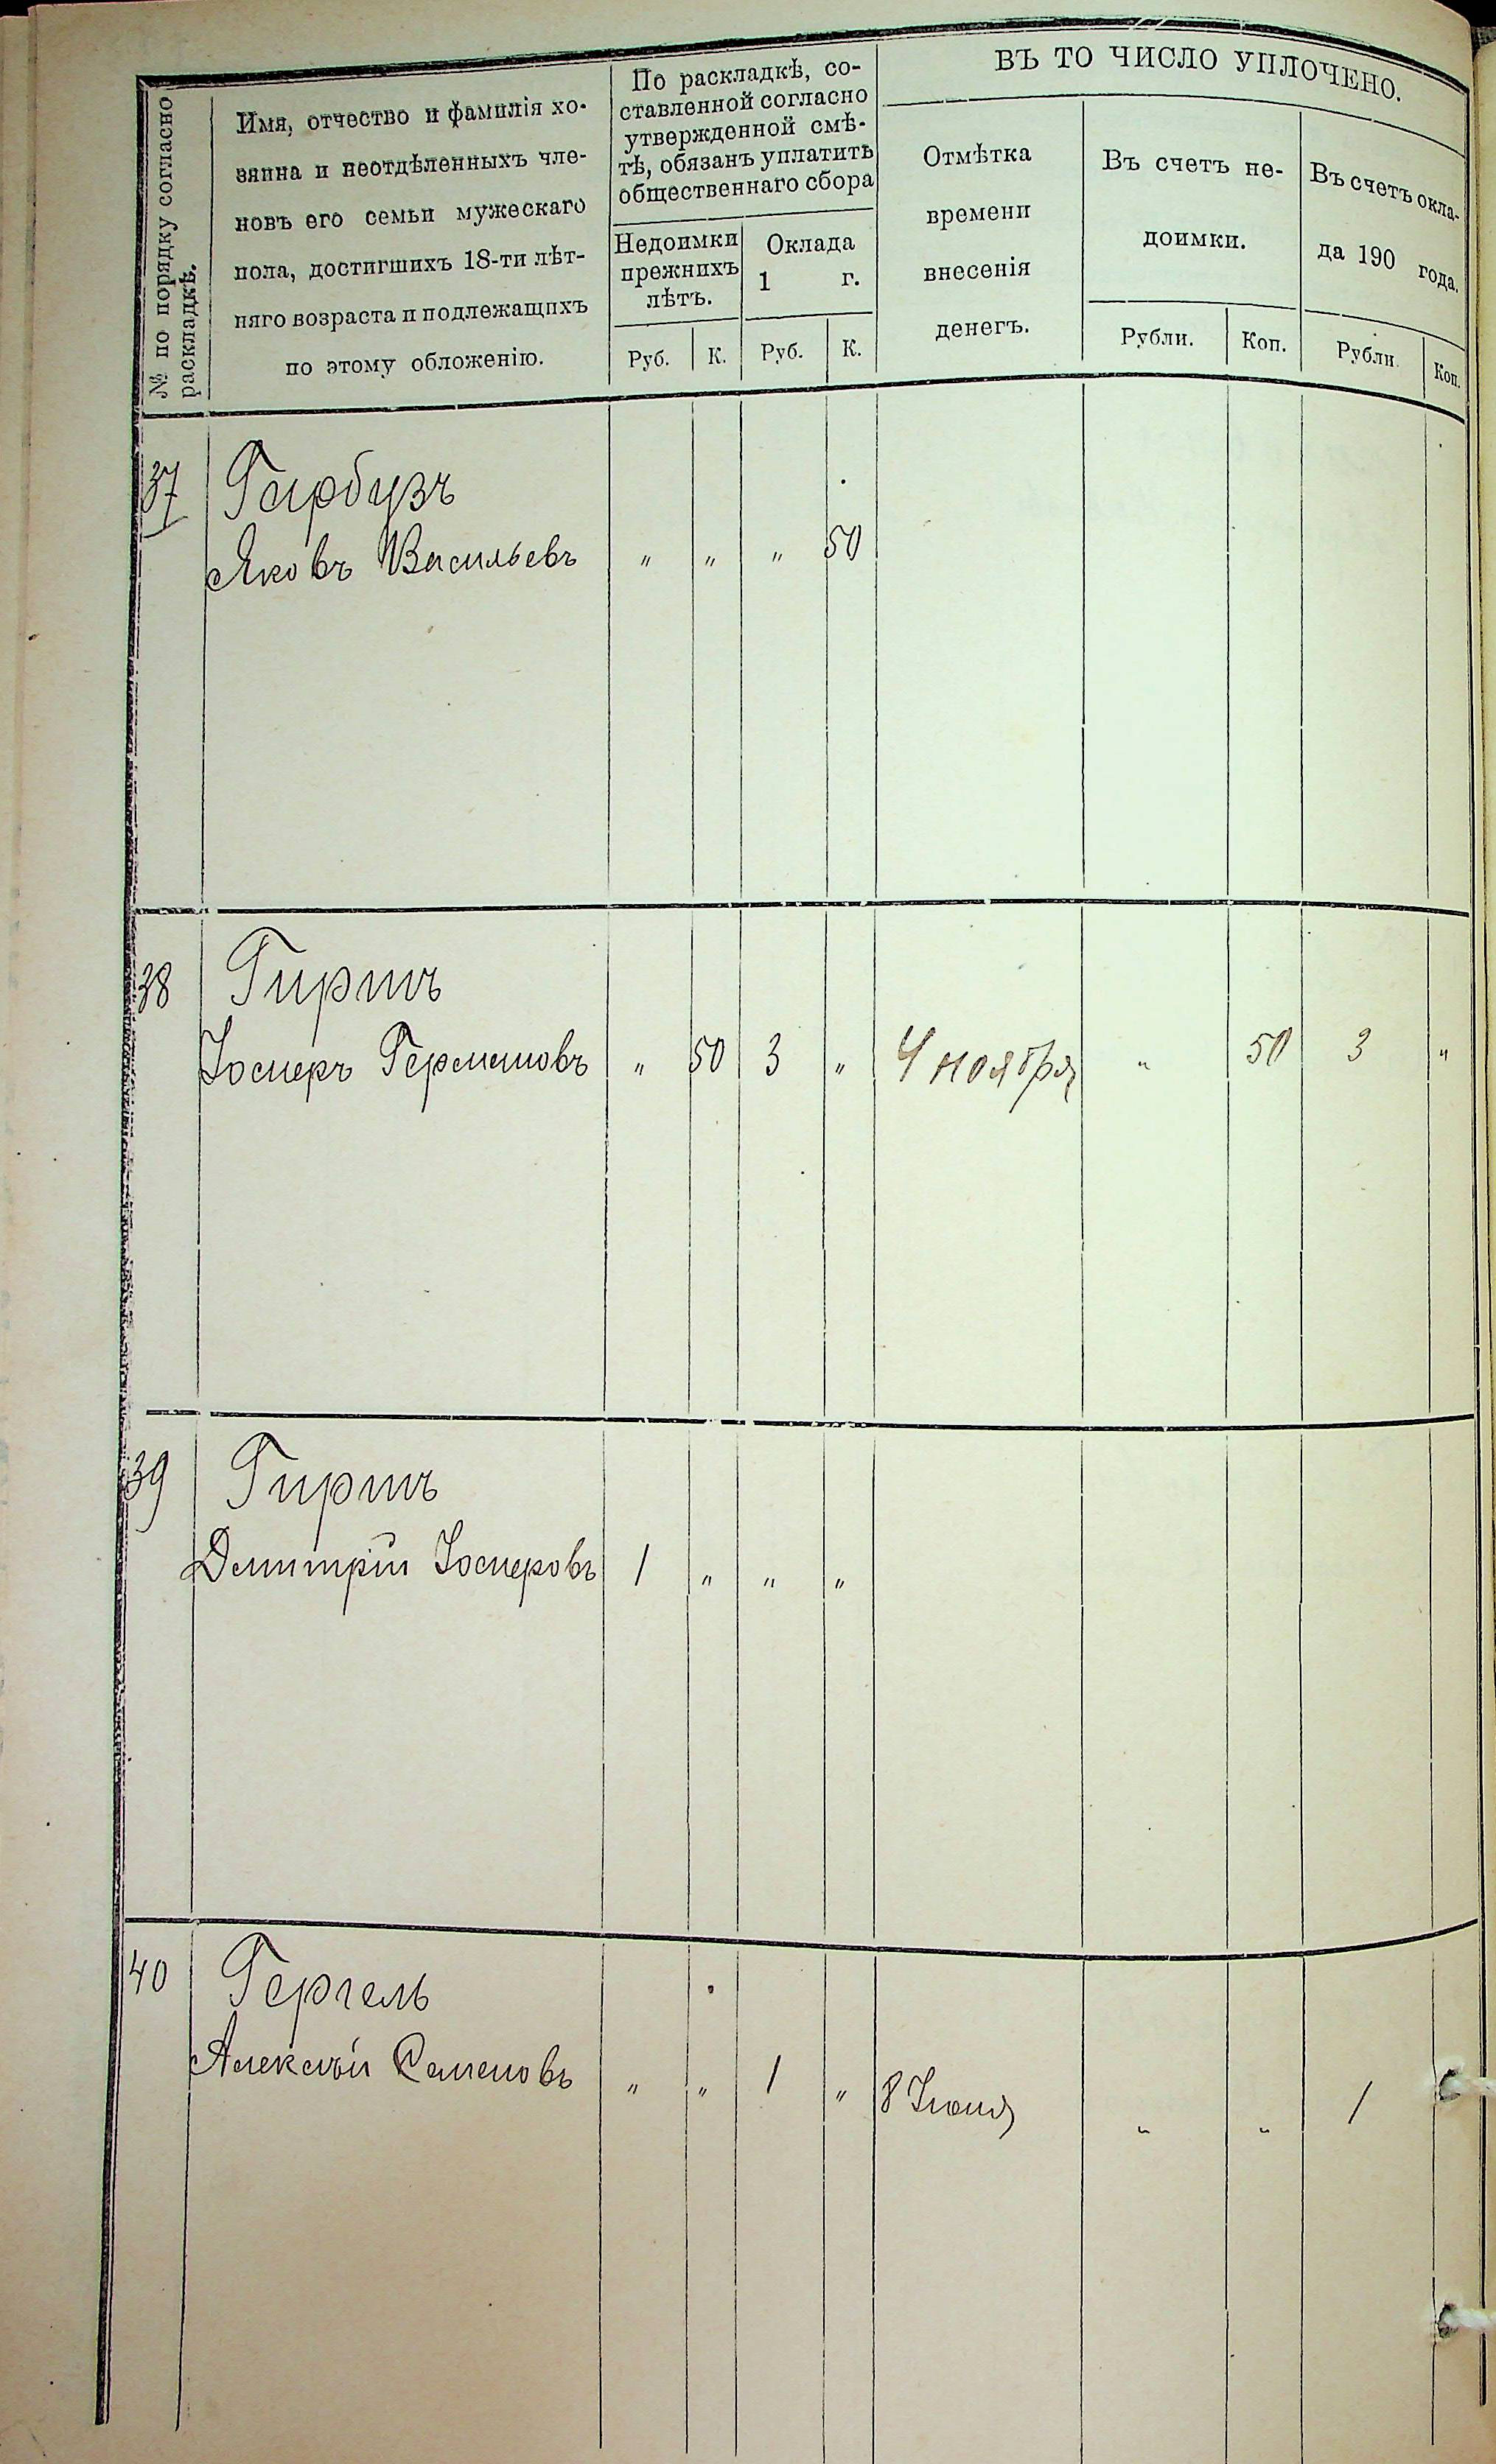 № по порядку согласно
раскладкѣ.
Имя, отчество и фамилія хо-
зяина и неотдѣленныхъ чле-
новъ его семьи мужескаго
пола, достигшихъ 18-ти лѣт-
няго возраста и подлежащихъ
по этому обложенію.
По раскладкѣ, со-
ставленной согласно
утвержденной смѣ-
тѣ, обязанъ уплатить
общественнаго сбора
Недоимки
прежнихъ
лѣтъ.
Руб. К.
Оклада
1 г.
Руб. К.
ВЪ ТО ЧИСЛО УПЛОЧЕНО.
Отмѣтка
времени
внесенія
денегъ.
Въ счетъ не-
доимки.
Рубли. Коп.
Въ счетъ окла-
да 190 года.
Рубли. Коп.
37 Гарбузъ
Яковъ Васильевъ " " " 50
38 Гиршъ
Германовъ " 50 3 " 4 ноября " 50 3 "
39 Гиршъ
Дмитрій 1 " " "
40 Гергель
Алексѣй Семеновъ " " 1 " 8 Іюня " " 1